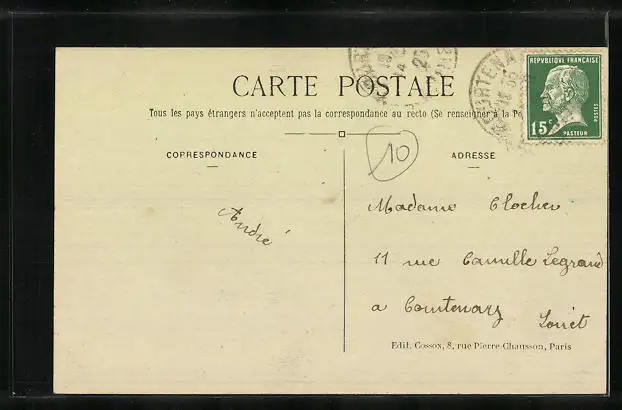 CARTE POSTALE
Tous les pays étrangers n'acceptent pas la correspondance au recto (Se renseigner à la Po
REPVBLIQUE FRANÇAISE
15c
POSTES
PASTEUR
10
CORRESPONDANCE
ADRESSE
André
Madame Clocher
11 rue Camille Legrand
a Courtenay
Loiret
Edit. Cossox, 8, rue Pierre-Chausson, Paris